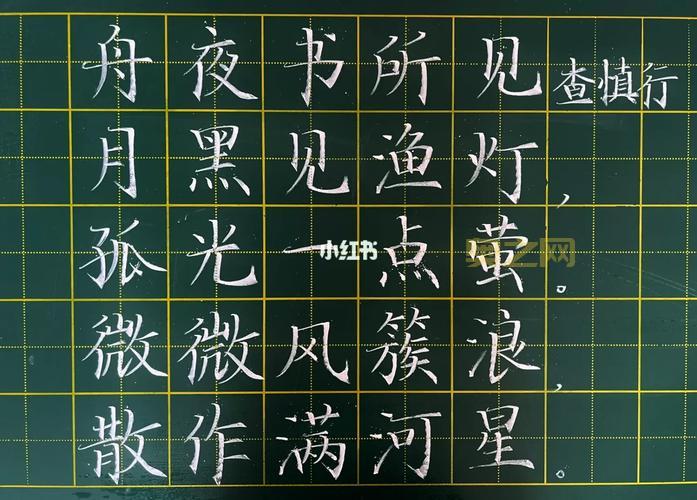 舟夜书所见 查慎行
月黑见渔灯，
孤光一点萤。
微微风簇浪，
散作满河星。
小红书